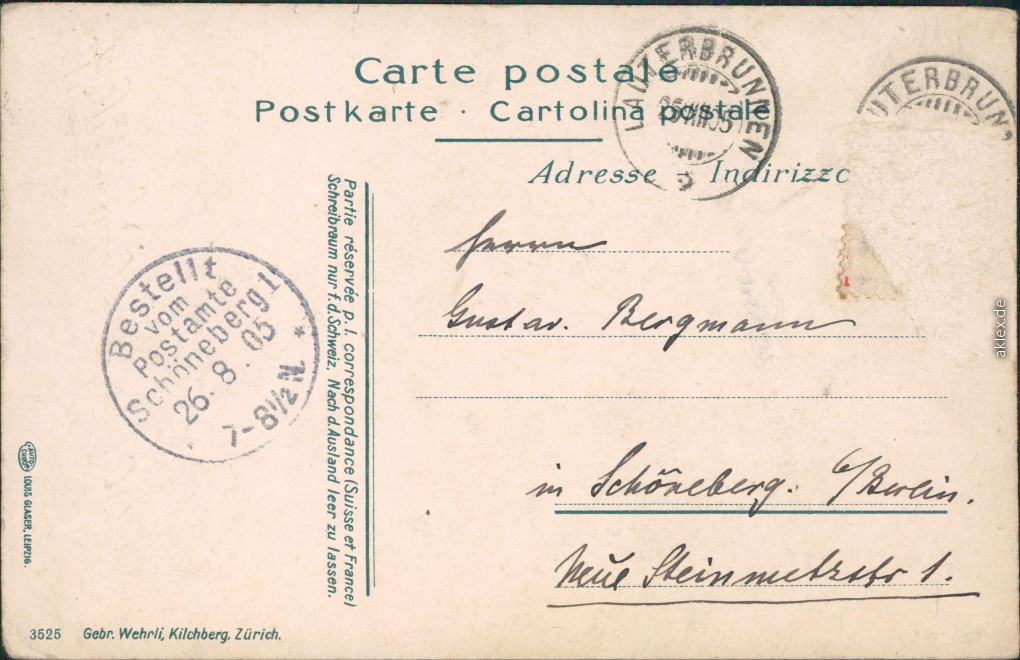 Carte postale
Postkarte · Cartolina postale
Adresse Indirizzo
LAUTERBRUNNEN
25.VIII.05
UTERBRUNN
Partie réservée p. l. correspondance (Suisse et France)
Schreibraum nur f. d. Schweiz. Nach d. Ausland leer zu lassen.
Bestellt
vom
Postamte
Schöneberg 1
26. 8. 05 *
7-8½ N.
Herrn
Gustav. Bergmann
in Schöneberg. b/Berlin.
Neue Steinmetzstr 1.
AUTO CHROM
LOUIS GLASER, LEIPZIG.
3525 Gebr. Wehrli, Kilchberg, Zürich.
aklex.de